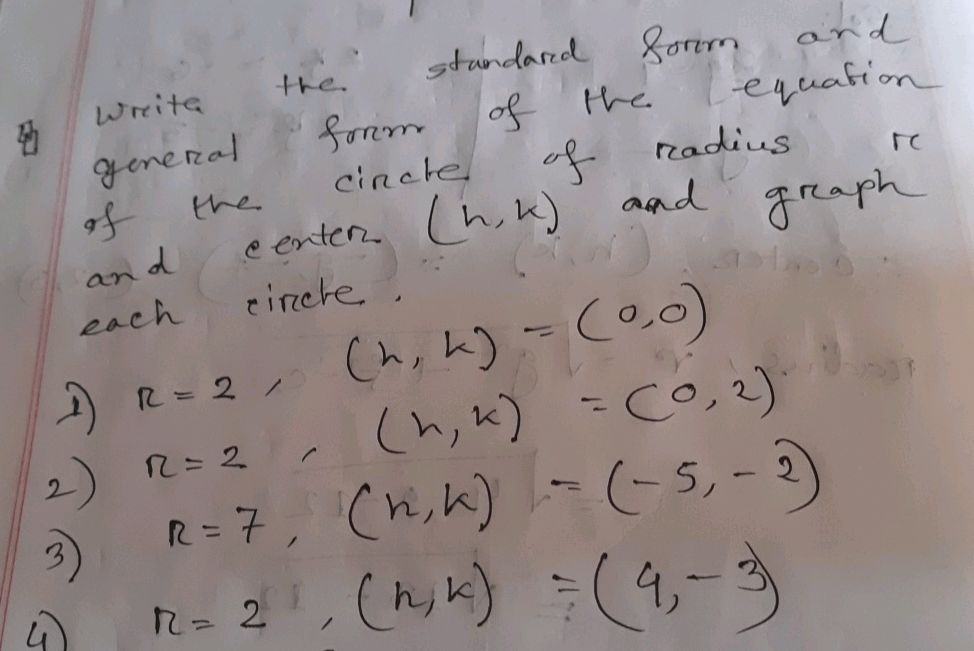 Write the standard form and
general form of the equation
of the circle of radius r
and center (h, k) and graph
each circle.
1) r = 2, (h, k) = (0,0)
2) r = 2, (h, k) = (0, 2)
3) r = 7, (h, k) = (-5, -2)
4) r = 2, (h, k) = (4, -3)